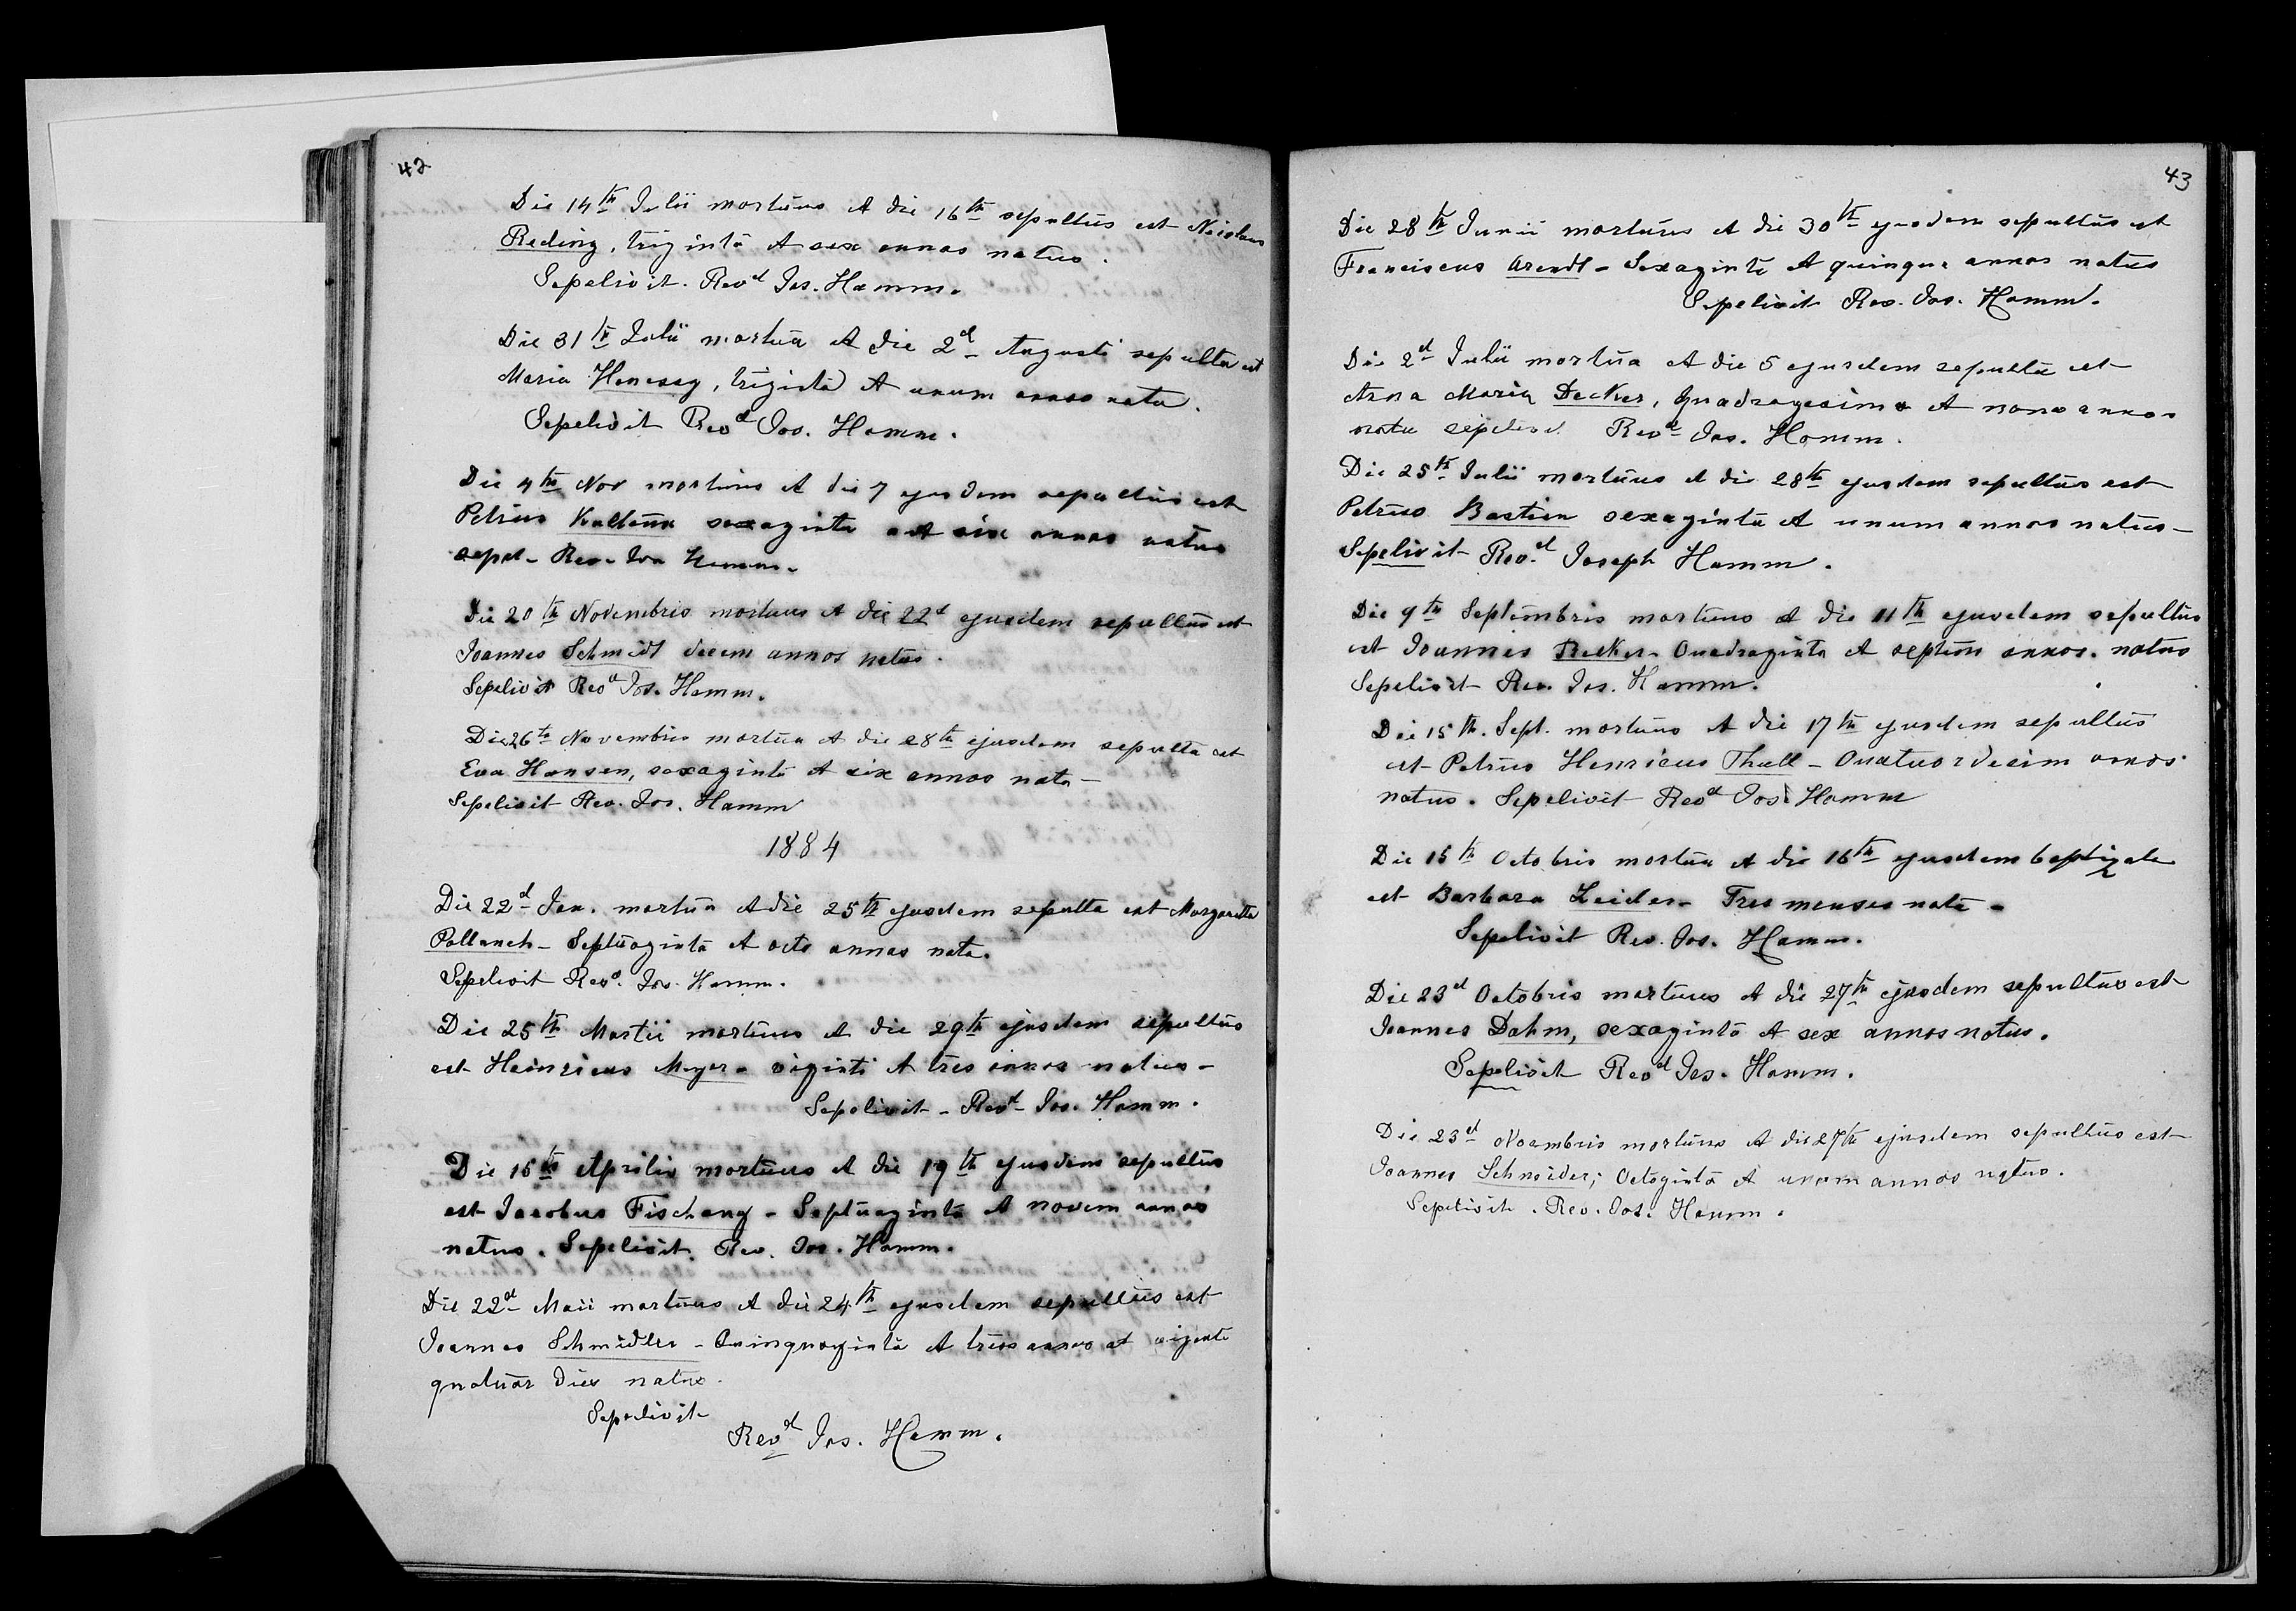 42
Die 14th Julii mortuus et die 16th sepultus est Nicolaus
Reding, triginta et sex annos natus.
Sepelivit. Revd Jos. Hamm.
Die 31th Julii mortua et die 2d Augusti sepulta est
Maria Henessy, triginta et unum annos nata.
Sepelivit Revd Jos. Hamm.
Die 4th Nov mortuus et die 7 ejusdem sepultus est
Petrus sexaginta et six annos natus
sepel- Rev. Jos Hamm.
Die 20th Novembris mortuus et die 22d ejusdem sepultus est
Joannes Schmidt decem annos natus.
Sepelivit Revd Jos. Hamm.
Die 26th Novembris mortua et die 28th ejusdem sepulta est
Eva Hansen, sexaginta et six annos nata-
Sepelivit Rev. Jos. Hamm
1884
Die 22d Jan. mortua et die 25th ejusdem sepulta est Margaretta
Pallanch- Septuaginta et octo annos nata.
Sepelivit Revd. Jos. Hamm.
Die 25th Martii mortuus et die 29th ejusdem sepultus
est Heinricus Meyer- viginti et tres annos natus-
Sepelivit- Revd- Jos. Hamm.
Die 16th Aprilis mortuus et die 19th ejusdem sepultus
est Jacobus Fischang- Septuaginta et novem annos
natus. Sepelivit. Rev. Jos. Hamm.
Die 22d Maii mortuus et die 24th ejusdem sepultus est
Joannes Schmidler- Quinquaginta et tres annos et viginti
quatuor dies natus.
Sepelivit
Revd Jos. Hamm.
43
Die 28th Junii mortuus et die 30th ejusdem sepultus est
Franciscus Arendt- Sexaginta et quinque annos natus
Sepelivit Rev. Jos. Hamm.
Die 2d Julii mortua et die 5 ejusdem sepulta est
Anna Maria Decker, Quadragesimo et nono annos
nata sepelivit Revd- Jos. Hamm.
Die 25th Julii mortuus et die 28th ejusdem sepultus est
Petrus Bastien sexaginta et unum annos natus-
Sepelivit Revd. Joseph Hamm.
Die 9th Septembris mortuus et die 11th ejusdem sepultus
est Joannes Becker- Quadraginta et septem annos. natus
Sepelivit- Rev. Jos. Hamm.
Die 15th. Sept. mortuus et die 17th ejusdem sepultus
est Petrus Henricus Thull- Quatuordecim annos
natus. Sepelivit Revd Jos. Hamm
Die 15th Octobris mortua et die 16th ejusdem baptizata
est Barbara Leider- Tres menses nata-
Sepelivit Rev. Jos. Hamm.
Die 23d Octobris mortuus et die 27th ejusdem sepultus est
Joannes Dahm, sexaginta et sex annos natus.
Sepelivit Revd Jos. Hamm.
Die 23d Noembris mortuus et die 27th ejusdem sepultus est
Joannes Schneider; Octoginta et unum annos natus.
Sepelivit. Rev. Jos. Hamm.